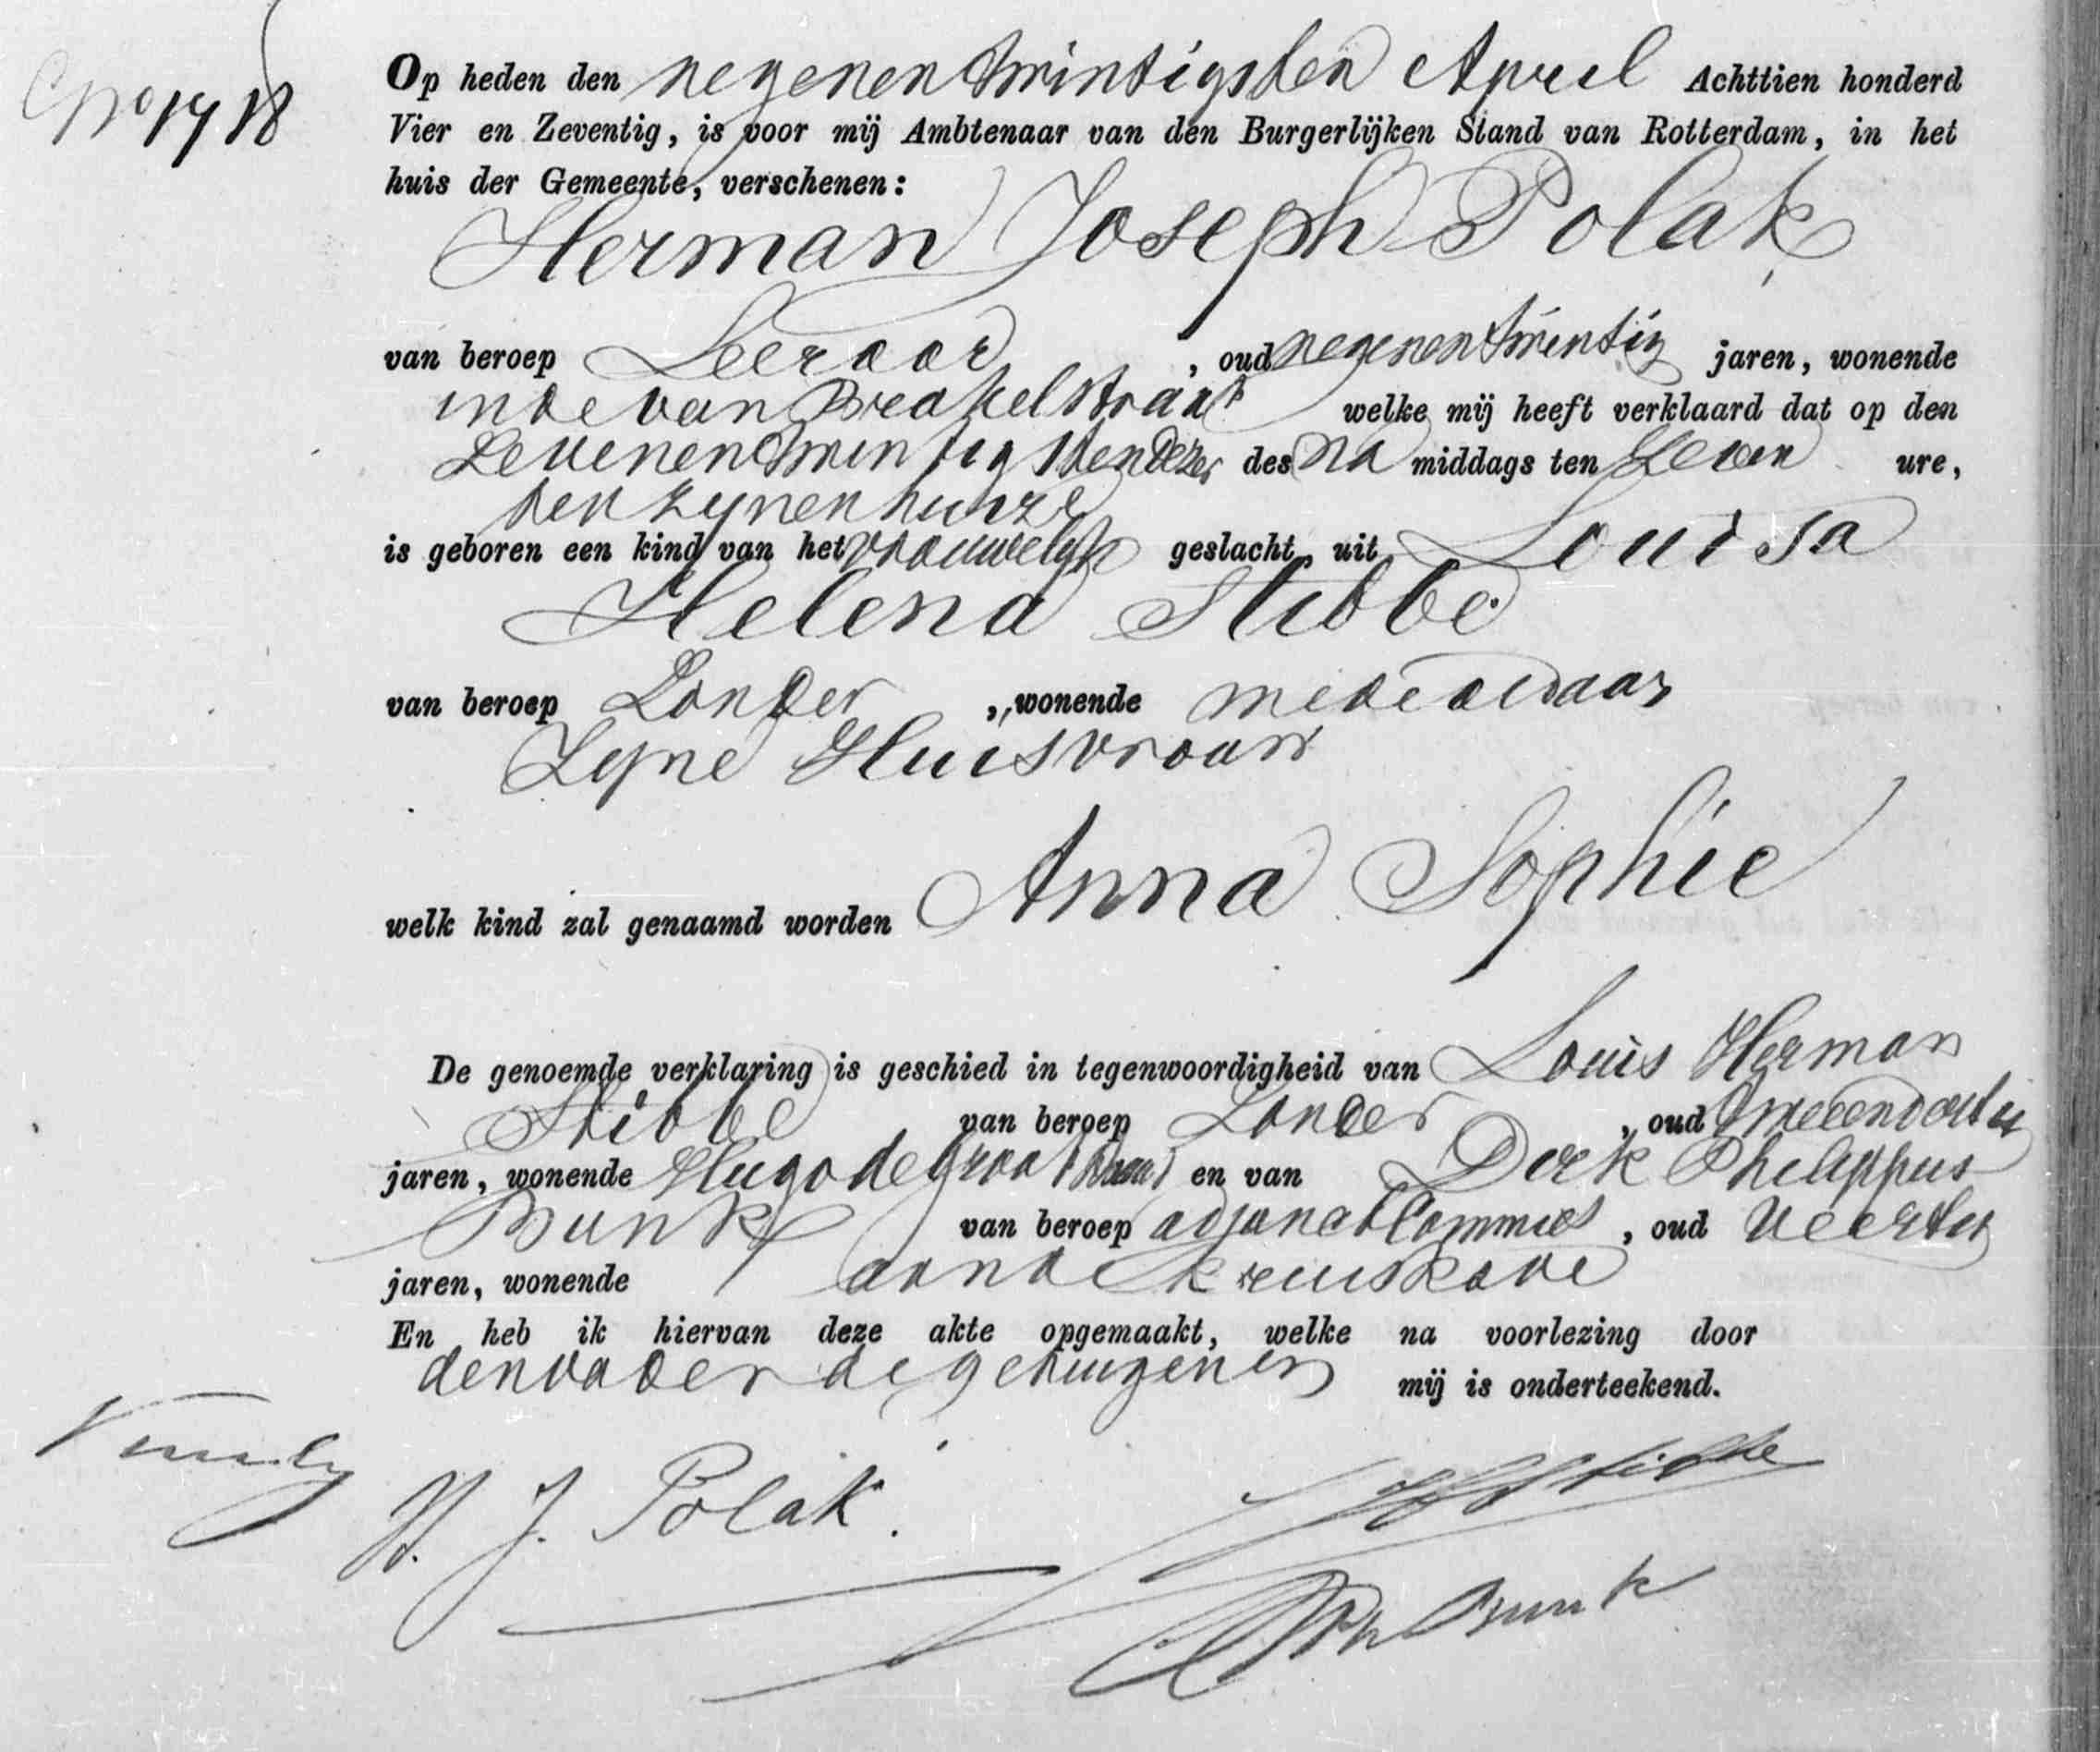 No 1718
Op heden den negenentwintigsten April Achttien honderd
Vier en Zeventig, is voor mij Ambtenaar van den Burgerlijken Stand van Rotterdam, in het
huis der Gemeente, verschenen:
Herman Joseph Polak
van beroep Leeraar, oud negenentwintig jaren, wonende
in de van Brakelstraat welke mij heeft verklaard dat op den
Zevenentwintigsten dezer des na middags ten Zeven ure,
ten zijnen huize
is geboren een kind van het vrouwelijk geslacht, uit Louisa
Helena Stibbe
van beroep Zonder, wonende mede aldaar
Zijne Huisvrouw
welk kind zal genaamd worden Anna Sophie
De genoemde verklaring is geschied in tegenwoordigheid van Louis Herman
Stibbe van beroep Zonder, oud tweeendertig
jaren, wonende Hugo de Grootstraat en van Dirk Philippus
Bunk van beroep adjunct Commies, oud Veertig
jaren, wonende aan de Kruiskade
En heb ik hiervan deze akte opgemaakt, welke na voorlezing door
den vader de getuigen en mij is onderteekend.
H. J. Polak.
LHStibbe
DPhBunk